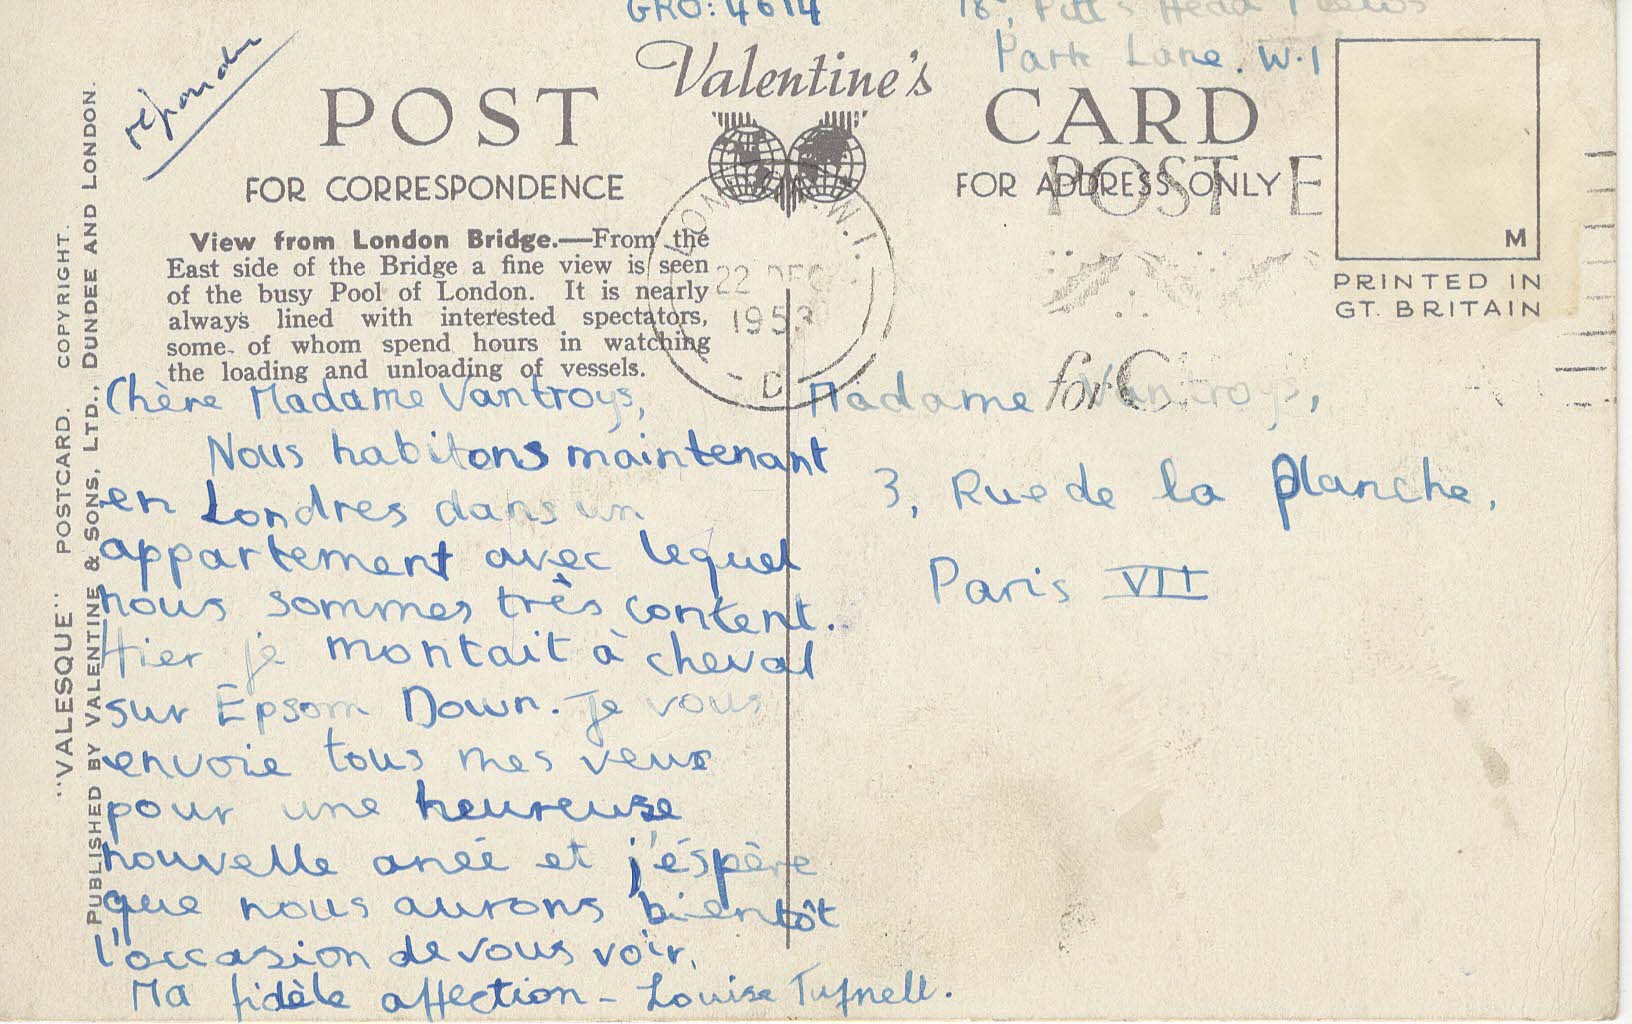 GRO: 4614
18, Pitt's Head Mews
Park Lane. W.1
répondu
Valentine's
POST CARD
FOR CORRESPONDENCE
FOR ADDRESS ONLY
POST E
M
PRINTED IN
GT. BRITAIN
View from London Bridge.—From the
East side of the Bridge a fine view is seen
of the busy Pool of London. It is nearly
always lined with interested spectators,
some of whom spend hours in watching
the loading and unloading of vessels.
LON W.1.
22 DEC
1953
D
for C
"VALESQUE" POSTCARD. COPYRIGHT.
PUBLISHED BY VALENTINE & SONS, LTD., DUNDEE AND LONDON.
Chère Madame Vantroys,
Nous habitons maintenant
en Londres dans un
appartement avec lequel
nous sommes très content.
Hier je montait à cheval
sur Epsom Down. Je vous
envoie tous mes veux
pour une heureuse
nouvelle anée et j'éspère
que nous aurons bientôt
l'occasion de vous voir.
Ma fidèle affection - Louise Tufnell.
Madame Vantroys,
3, Rue de la Planche,
Paris VII